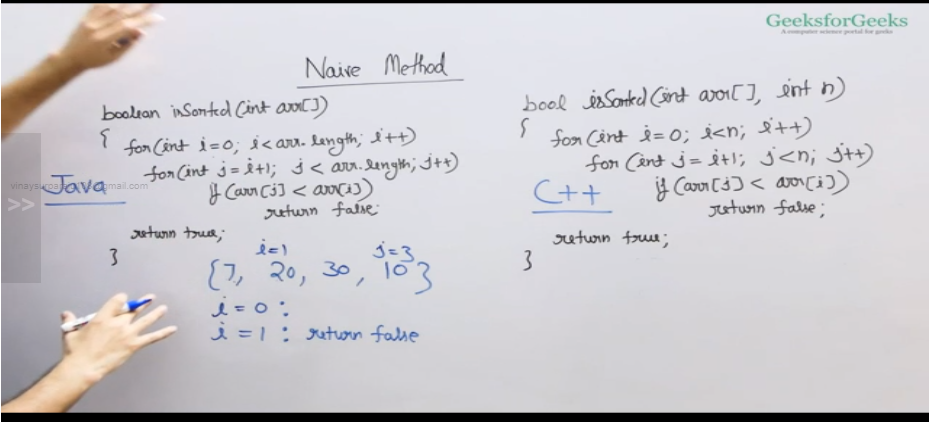 GeeksforGeeks
A computer science portal for geeks
Naive Method
boolean isSorted(int arr[])
{ for(int i=0; i<arr.length; i++)
for(int j=i+1; j<arr.length; j++)
if(arr[j] < arr[i])
return false;
return true;
}
Java
i=1 j=3
{7, 20, 30, 10}
i = 0 :
i = 1 : return false
bool isSorted(int arr[], int n)
{ for(int i=0; i<n; i++)
for(int j=i+1; j<n; j++)
if(arr[j] < arr[i])
return false;
return true;
}
C++
>>